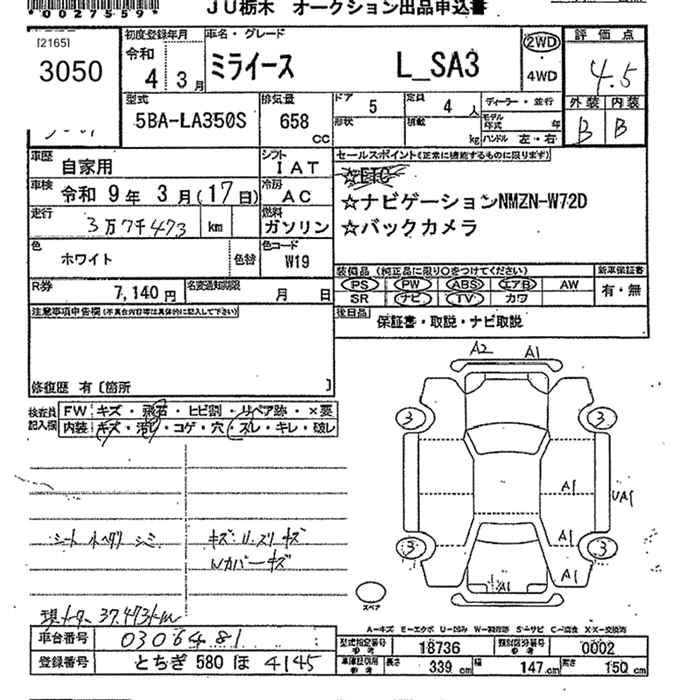 *0027559*
JU栃木 オークション出品申込書
[2165]
3050
初度登録年月
令和
4年 3月
車名・グレード
ミライース L_SA3
2WD
・
4WD
評価点
4.5
外装 内装
B B
型式
5BA-LA350S
排気量
658 CC
ドア 5
定員 4人
形状
積載 kg
ディーラー・並行
モデル年式 年
ハンドル 左・右
車歴 自家用
シフト IAT
車検 令和 9年 3月(17日)
冷房 AC
走行 3万7千473 km
燃料 ガソリン
色 ホワイト
色替
色コード W19
R券 7,140円
名変通知期限 月 日
セールスポイント(正常に機能するものに限ります)
☆ETC
☆ナビゲーションNMZN-W72D
☆バックカメラ
装備品(純正品に限り○をつけてください)
新車保証書
PS PW ABS エアB AW
SR ナビ TV カワ
有・無
後日品 保証書・取説・ナビ取説
注意事項申告欄(不具合内容等は具体的に記入して下さい)
修復歴 有〔箇所 〕
検査員記入欄
FW キズ・飛石・ヒビ割・リペア跡・×要
内装 キズ・汚れ・コゲ・穴・スレ・キレ・破レ
シート シミ
キズ
Wカバーキズ
現メーター 37,473km
A2 A1
3 3
A1 UA1
A1
3 3
A1
A1
スペア
A-キズ E-エクボ U-凹み W-補修跡 S-サビ C-腐食 XX-交換済
車台番号 0306481
登録番号 とちぎ 580 ほ 4145
型式指定番号 参考 18736
類別区分番号 参考 0002
車庫証明用 参考 長さ 339 cm 幅 147 cm 高さ 150 cm